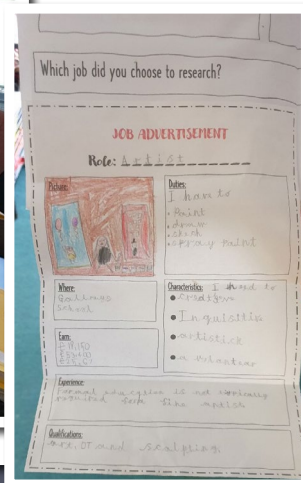 Which job did you choose to research?
JOB ADVERTISEMENT
Role: Artist
Picture:
Duties:
I have to
• Paint
• draw
• spray paint
Where:
School
Characteristics: I need to
• creative
• Inquisitiv
• artistice
• a volunteer
Earn:
Experience:
Formal education is not typically
required
Qualifications:
Art, DT and sculpting